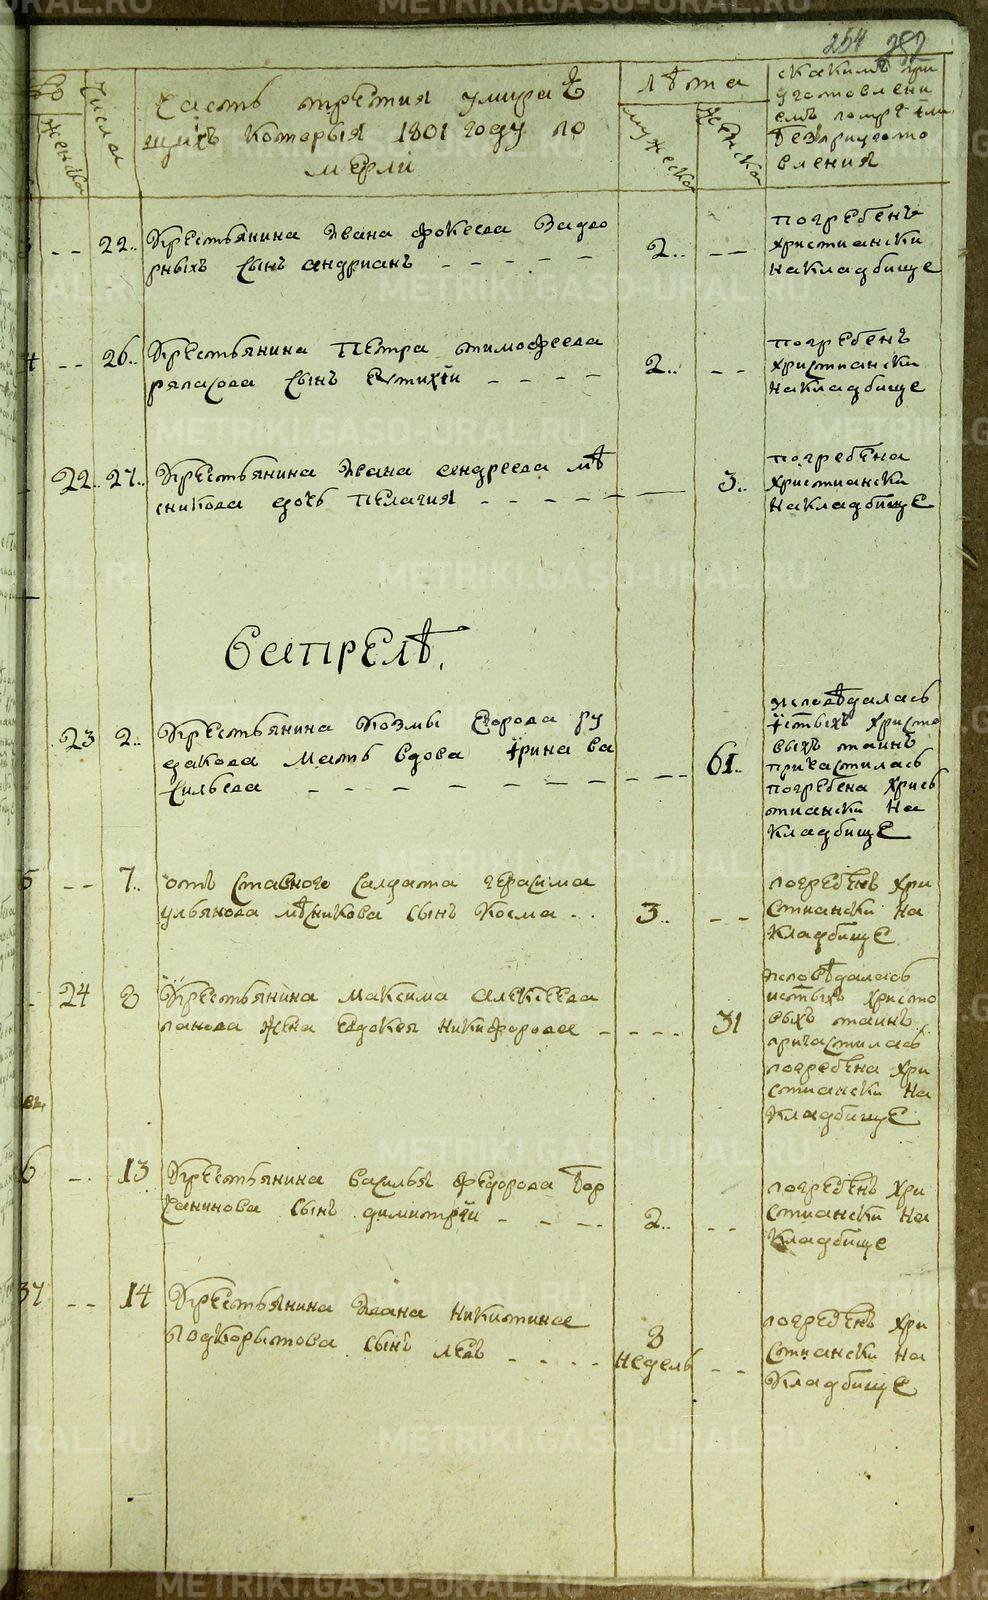 254 282
Женска
Числа
часть третия умираЮ
щихъ которыя 1801 году по
мерли
лѣта
мужеска
женска
скакимъ при
уготовлени
емъ
безприугото
вления
22.. Крестьянина Ивана Фокеева Задво
рныхъ сынъ андрианъ
2..
погребенъ
христиански
накладбище
26.. Крестьянина Петра тимофеева
сынъ Евтихiй
2..
погребенъ
христиански
накладбище
22.. 27.. Крестьянина Ивана андреева мѣ
сникова дочь Пелагия
3..
погребена
христиански
накладбище
В апрелѣ,
23 2.. Крестьянина Козмы Егорова ру
дакова мать вдова ирина ва
сильева
61..
исповѣдалась
iстыхъ христо
выхъ таинъ
причастилась
погребена христь
тиански на
кладбище
5 7.. отъ ставного салдата герасима
ульянова мѣсникова сынъ косма
3..
погребенъ хри
стиански на
кладбище
24 8 Крестьянина максима алексеева
панова жена евдокея никифорова
31
исповѣдалась
истыхъ христо
выхъ таинъ
причастилась
погребена хри
стиански на
кладбище
6 13 Крестьянина василья федорова Бор
чанинова сынъ димитрiй
2..
погребенъ хри
стиански на
кладбище
37 14 Крестьянина Ивана никитина
подкорытова сынъ левъ
3
недель
погребенъ хри
стиански на
кладбище
METRIKI.GASO-URAL.RU